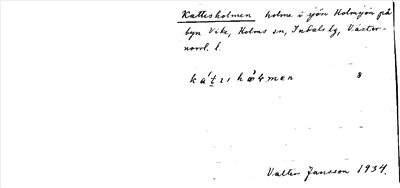 Kattesholmen holme i sjön Holmsjön på
byn Vike, Holms sn, Indals tg, Väster-
norrl. l.
8
Valter Jansson 1934.